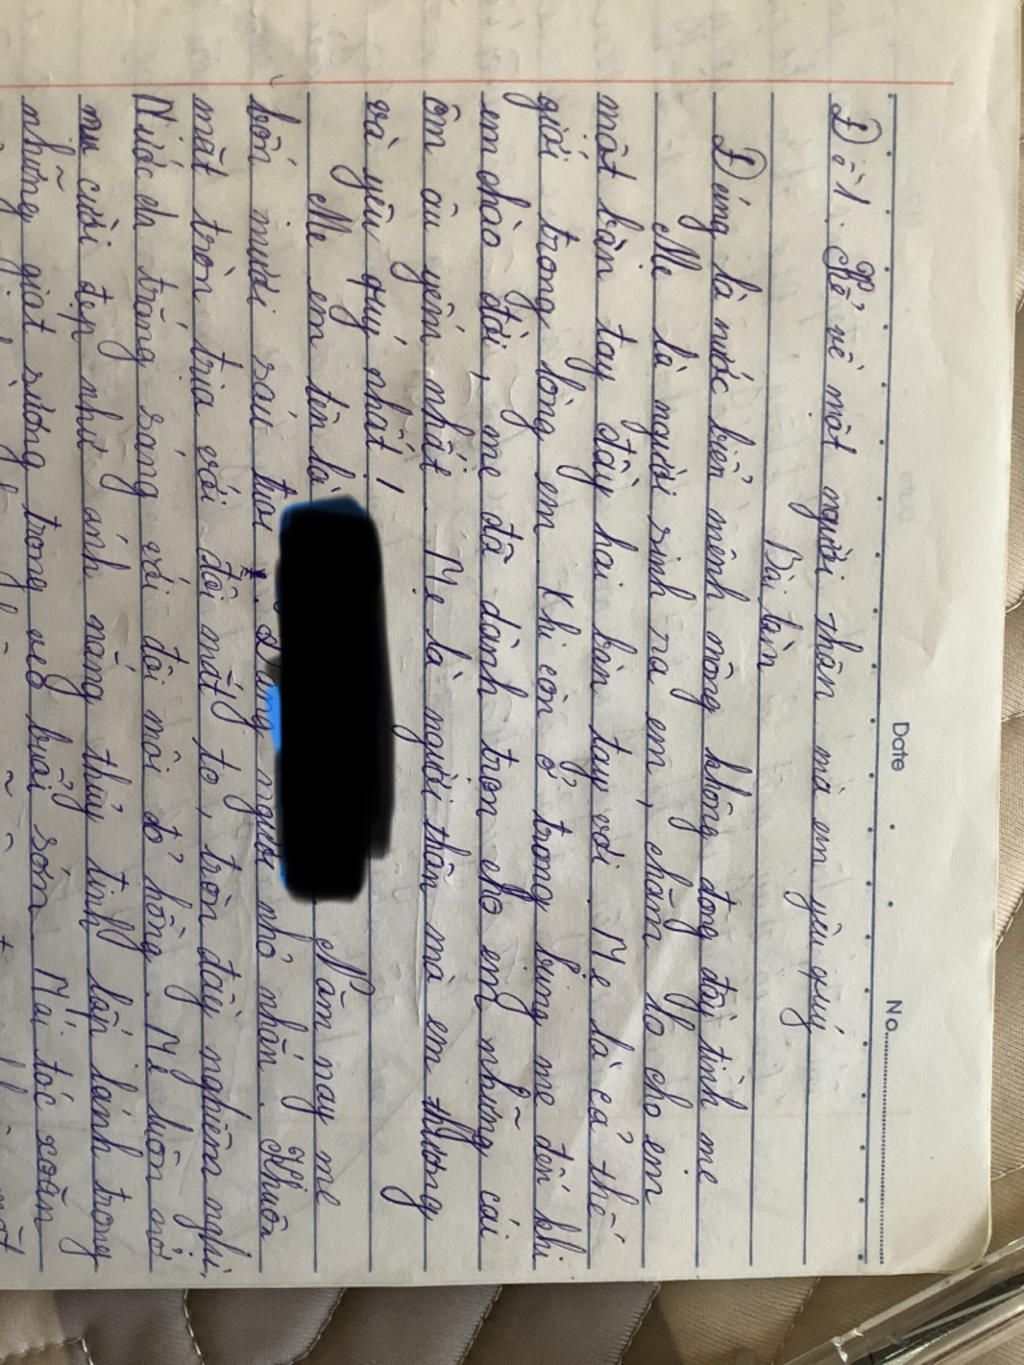 Date
No.
Đề 1. Kể về một người thân mà em yêu quý
Bài làm
Đúng là nước biển mênh mông không đong đầy tình mẹ
Mẹ là người sinh ra em, chăm lo cho em
một bàn tay đầy hai bàn tay vơi. Mẹ là cả thế
giới trong lòng em. Khi còn ở trong bụng mẹ đến khi
em chào đời, mẹ đã dành trọn cho em những cái
ôm âu yếm nhất. Mẹ là người thân mà em thương
và yêu quý nhất!
Mẹ em tên là Năm nay mẹ
bốn mươi sáu tuổi. Dáng người nhỏ nhắn. Khuôn
mặt tròn trịa với đôi mắt to, tròn đầy nghiêm nghị,
Nước da trắng sáng với đôi môi đỏ hồng. Mẹ luôn nở
nụ cười đẹp như ánh nắng thủy tinh lấp lánh trong
những giọt sương trong veo buổi sớm. Mái tóc xoăn